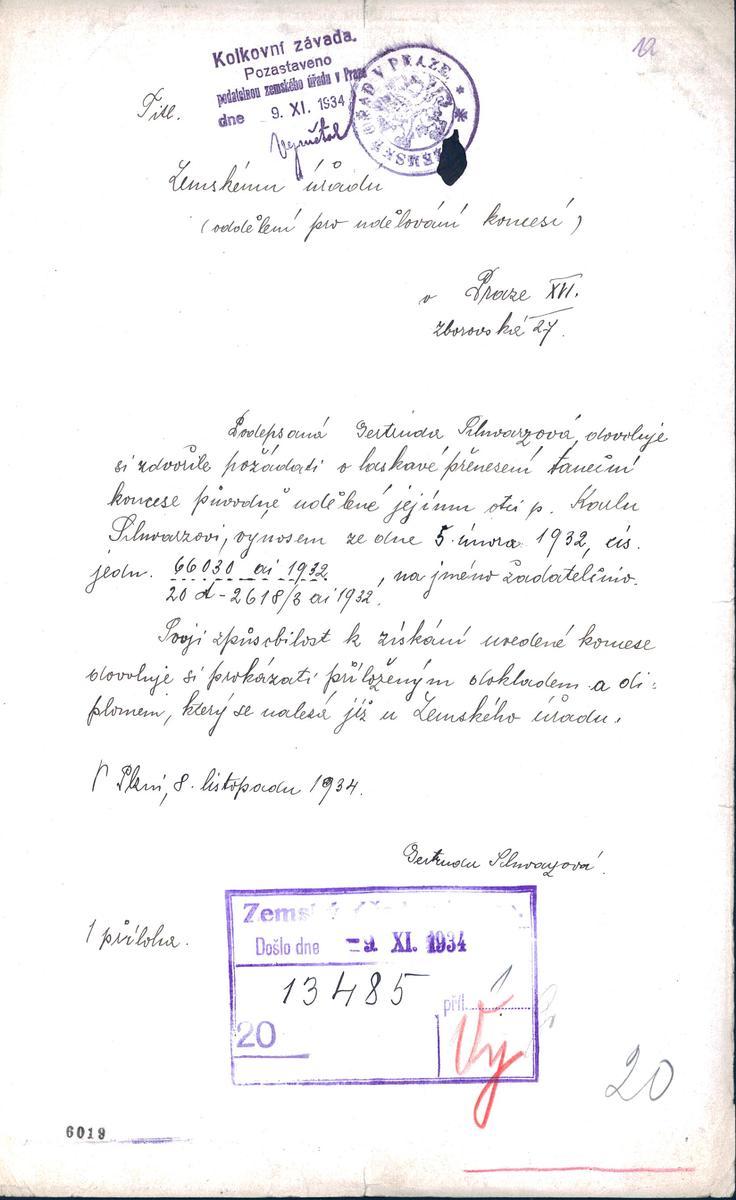 12
Kolkovní závada.
Pozastaveno
podatelnou zemského úřadu v Praze
dne 9. XI. 1934
ZEMSKÝ ÚŘAD V PRAZE
Titl.
Zemskému úřadu
(oddělení pro udělování koncesí)
v Praze XVI.
Zborovská 27.
Podepsaná Gertruda Schwarzová, dovoluje
si zdvořile požádati o laskavé přenesení taneční
koncese původně, udělené jejímu otci p. Karlu
Schwarzovi, výnosem ze dne 5. února 1932, čís.
jedn. 66030 ai 1932 , na jméno žadatelčino.
20 A - 2618/3 ai 1932.
Svoji způsobilost k získání uvedené koncese
dovoluje si prokázati přiloženým dokladem a di-
plomem, který se nalesá již u Zemského úřadu.
V Plzni, 8. listopadu 1934.
Gertruda Schwarzová.
1 příloha.
Došlo dne -9. XI. 1934
13485
příl. 1
20
Vy
20
6019